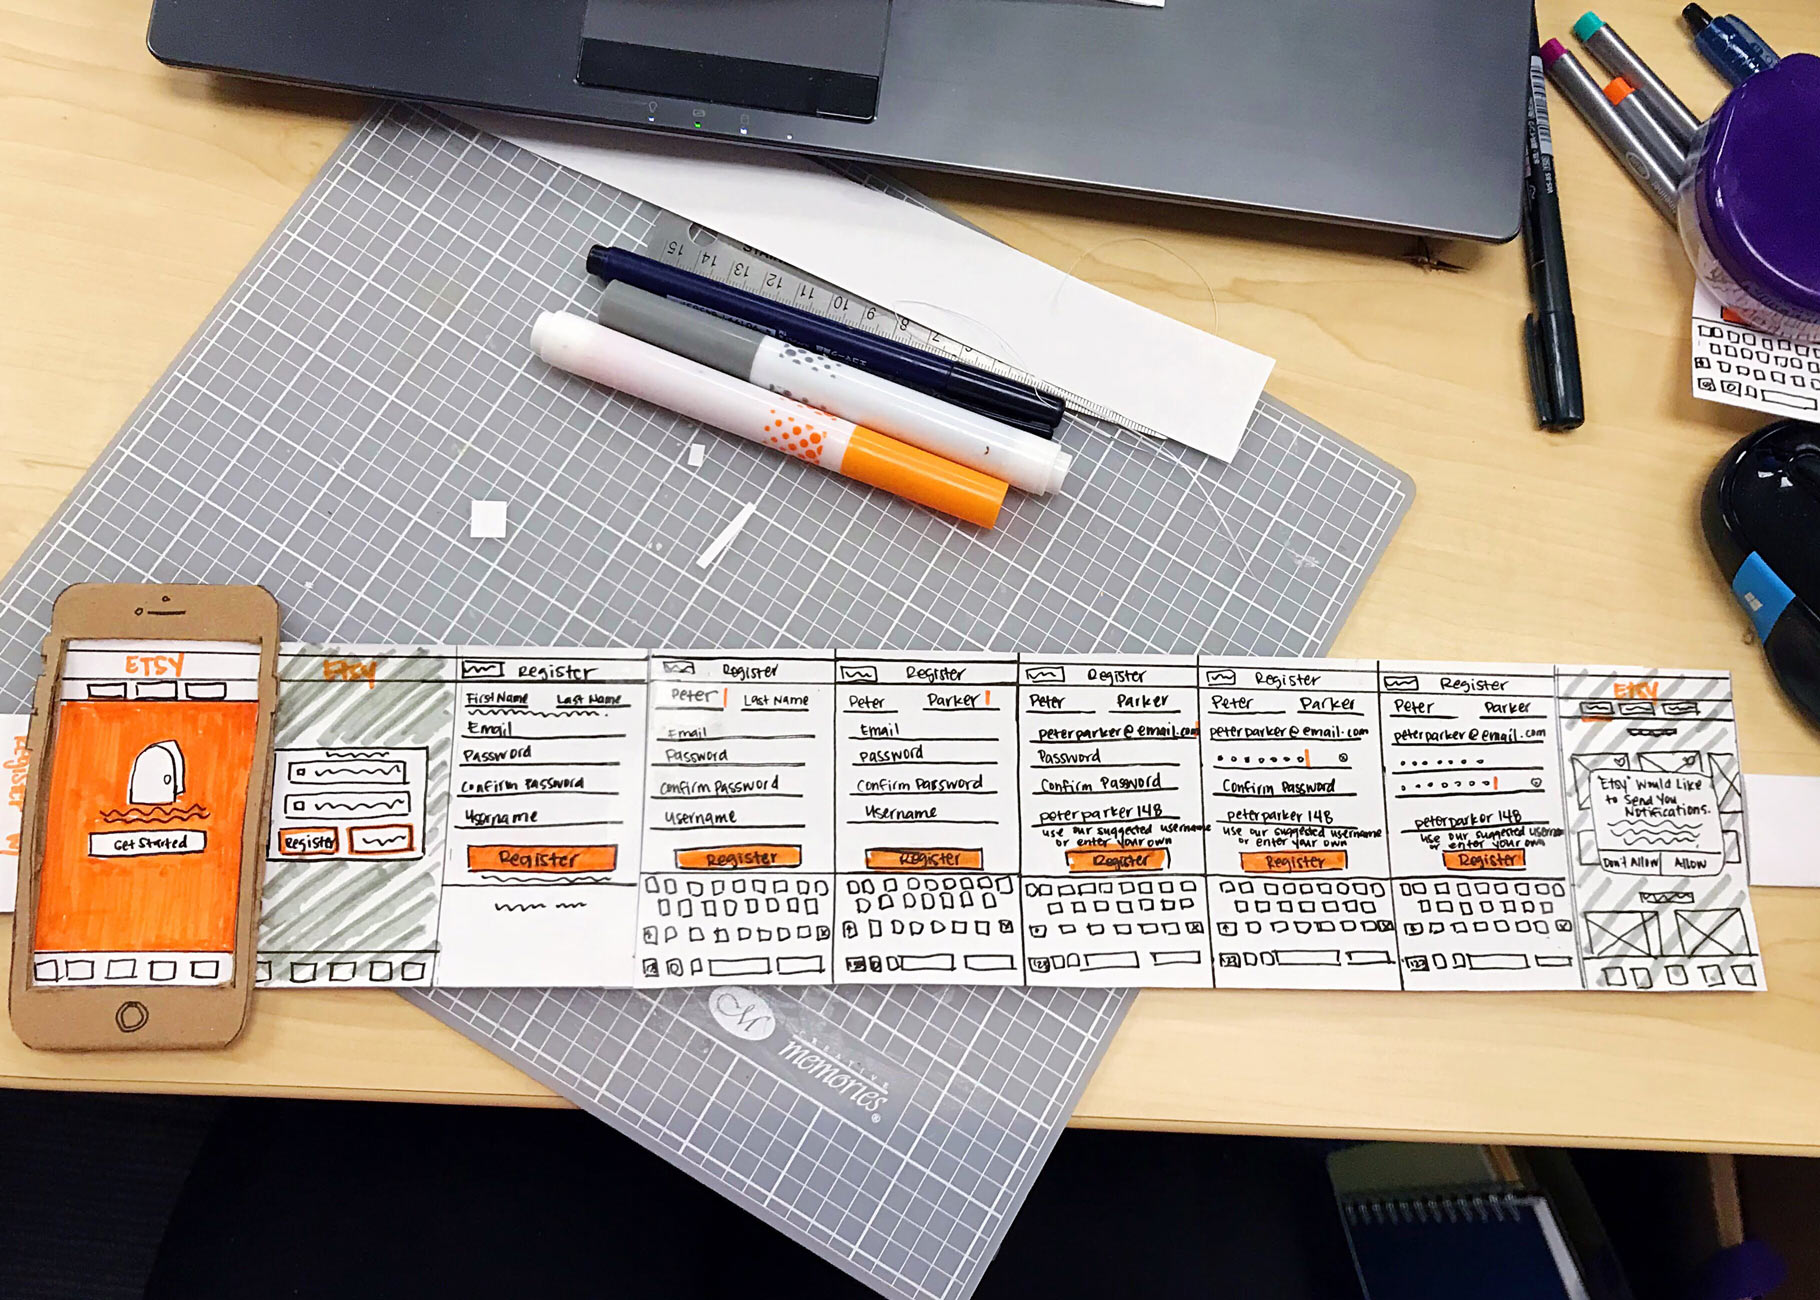 15 14 13 12 11 10 9 8 7 6
ETSY
Get Started
Register
ETSY
Register
Register
First Name Last Name
Email
Password
Confirm Password
Username
Register
Register
Peter Last Name
Email
Password
Confirm Password
Username
Register
Register
Peter Parker
Email
Password
Confirm Password
Username
Register
123
Register
Peter Parker
peterparker@email.com
Password
Confirm Password
peterparker148
use our suggested username
or enter your own
Register
123
Register
Peter Parker
peterparker@email.com
Confirm Password
peterparker148
use our suggested username
or enter your own
Register
123
Register
Peter Parker
peterparker@email.com
peterparker148
use our suggested username
or enter your own
Register
123
ETSY
"Etsy" Would Like
to Send You
Notifications.
Don't Allow Allow
CREATIVE
memories®